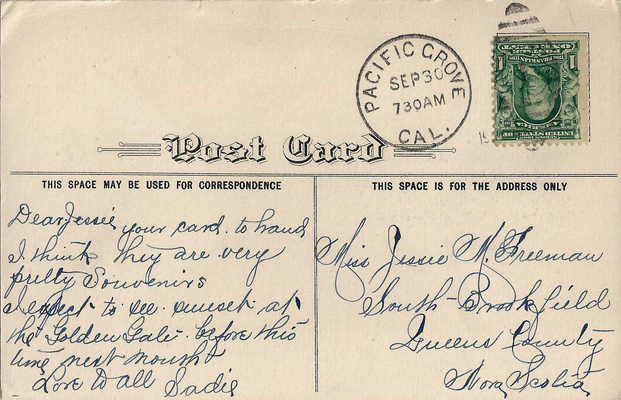 PACIFIC GROVE
SEP 30
730AM
CAL.
19
Post Card
THIS SPACE MAY BE USED FOR CORRESPONDENCE
THIS SPACE IS FOR THE ADDRESS ONLY
Dear Jessie
your card to hand
I think they are very
pretty Souvenirs
I expect to see sunset at
the Golden Gate before this
time next month
Love to all Sadie
Miss Jessie M. Freeman
South Brookfield
Queens County
Nova Scotia